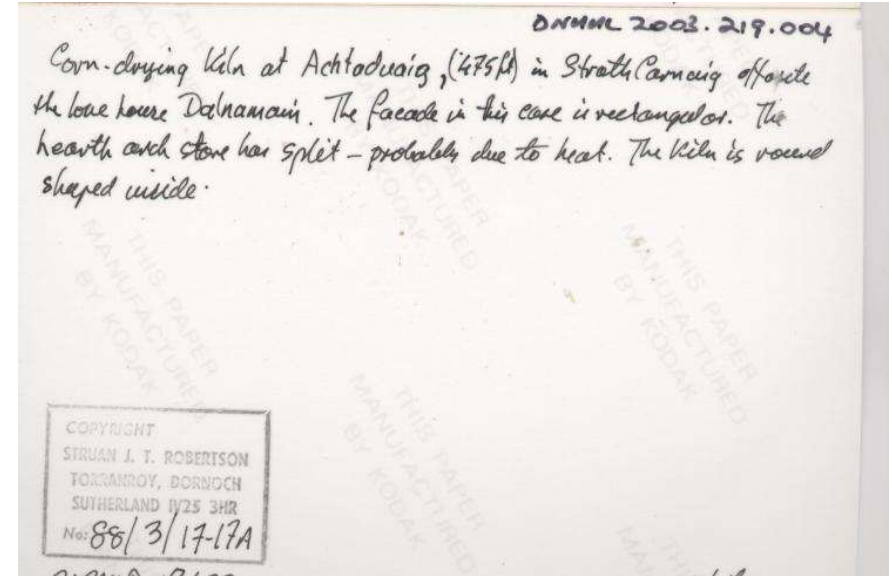 DNHML 2003.219.004
Corn-drying Kiln at Achtaduaig, (475ft) in Strath Carnaig opposite
the lone house Dalnamain. The facade in this case is rectangular. The
hearth arch stone has split – probably due to heat. The Kiln is round
shaped inside.
THIS PAPER
MANUFACTURED
BY KODAK
THIS PAPER
MANUFACTURED
BY KODAK
THIS PAPER
MANUFACTURED
BY KODAK
COPYRIGHT
STRUAN J. T. ROBERTSON
TORRANROY, DORNOCH
SUTHERLAND IV25 3HR
No: 88/3/17-17A